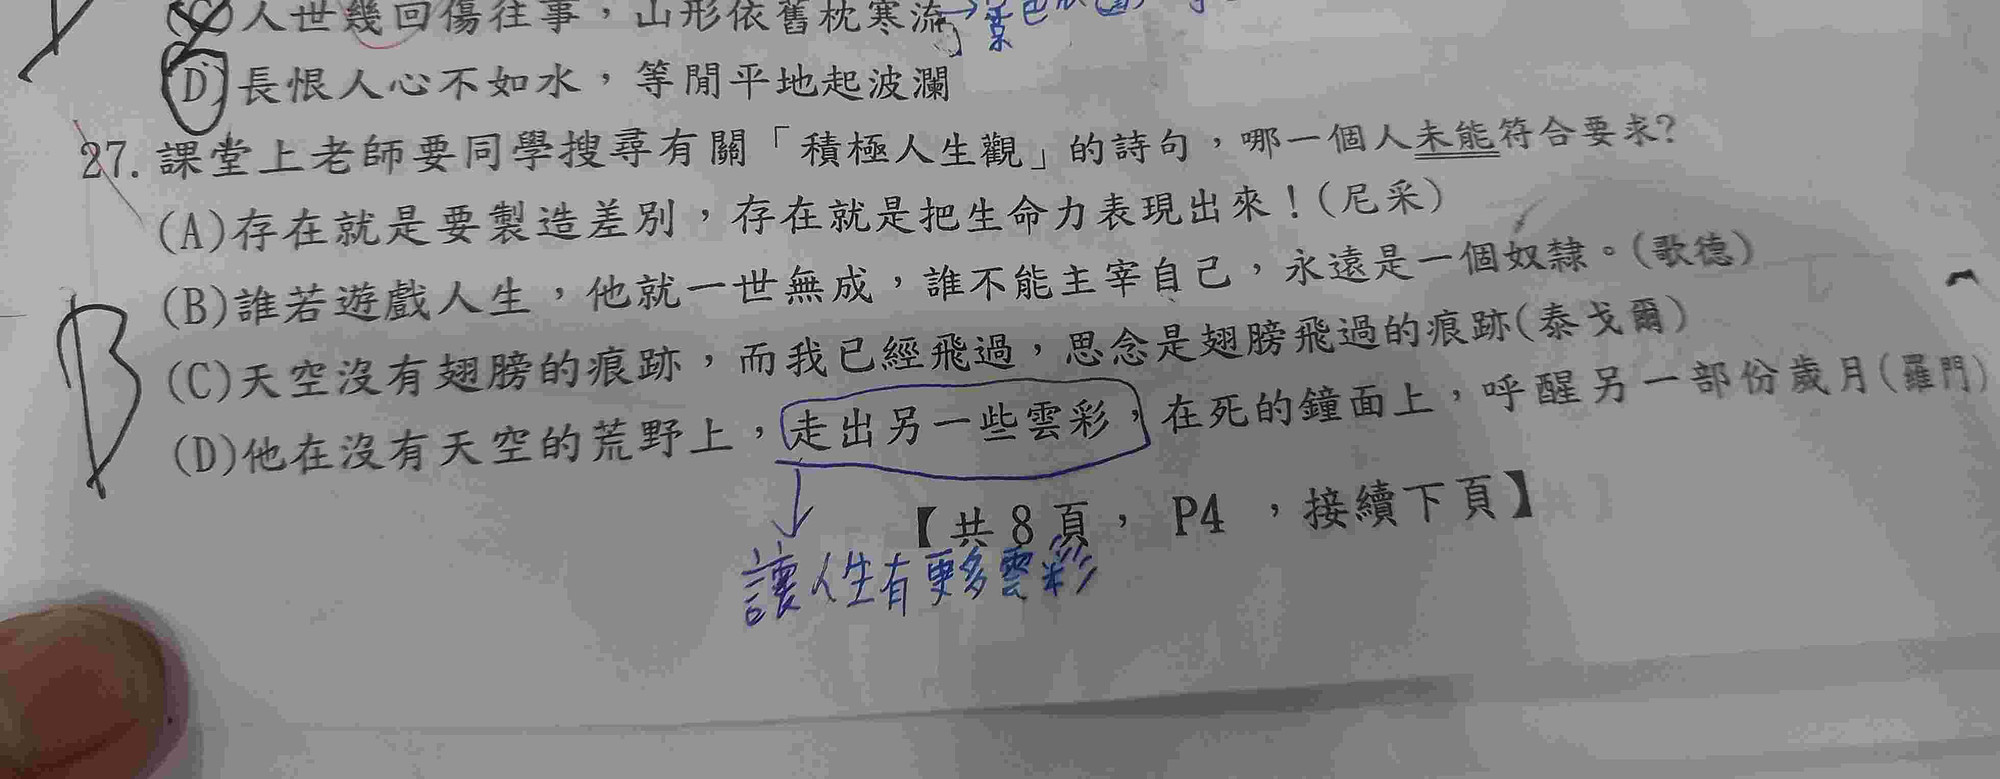 (C)人世幾回傷往事，山形依舊枕寒流
(D)長恨人心不如水，等閒平地起波瀾
27.課堂上老師要同學搜尋有關「積極人生觀」的詩句，哪一個人未能符合要求?
(A)存在就是要製造差別，存在就是把生命力表現出來！(尼采)
(B)誰若遊戲人生，他就一世無成，誰不能主宰自己，永遠是一個奴隸。(歌德)
B
(C)天空沒有翅膀的痕跡，而我已經飛過，思念是翅膀飛過的痕跡(泰戈爾)
(D)他在沒有天空的荒野上，走出另一些雲彩，在死的鐘面上，呼醒另一部份歲月(羅門)
【共8頁， P4 ，接續下頁】
讓人生有更多雲彩